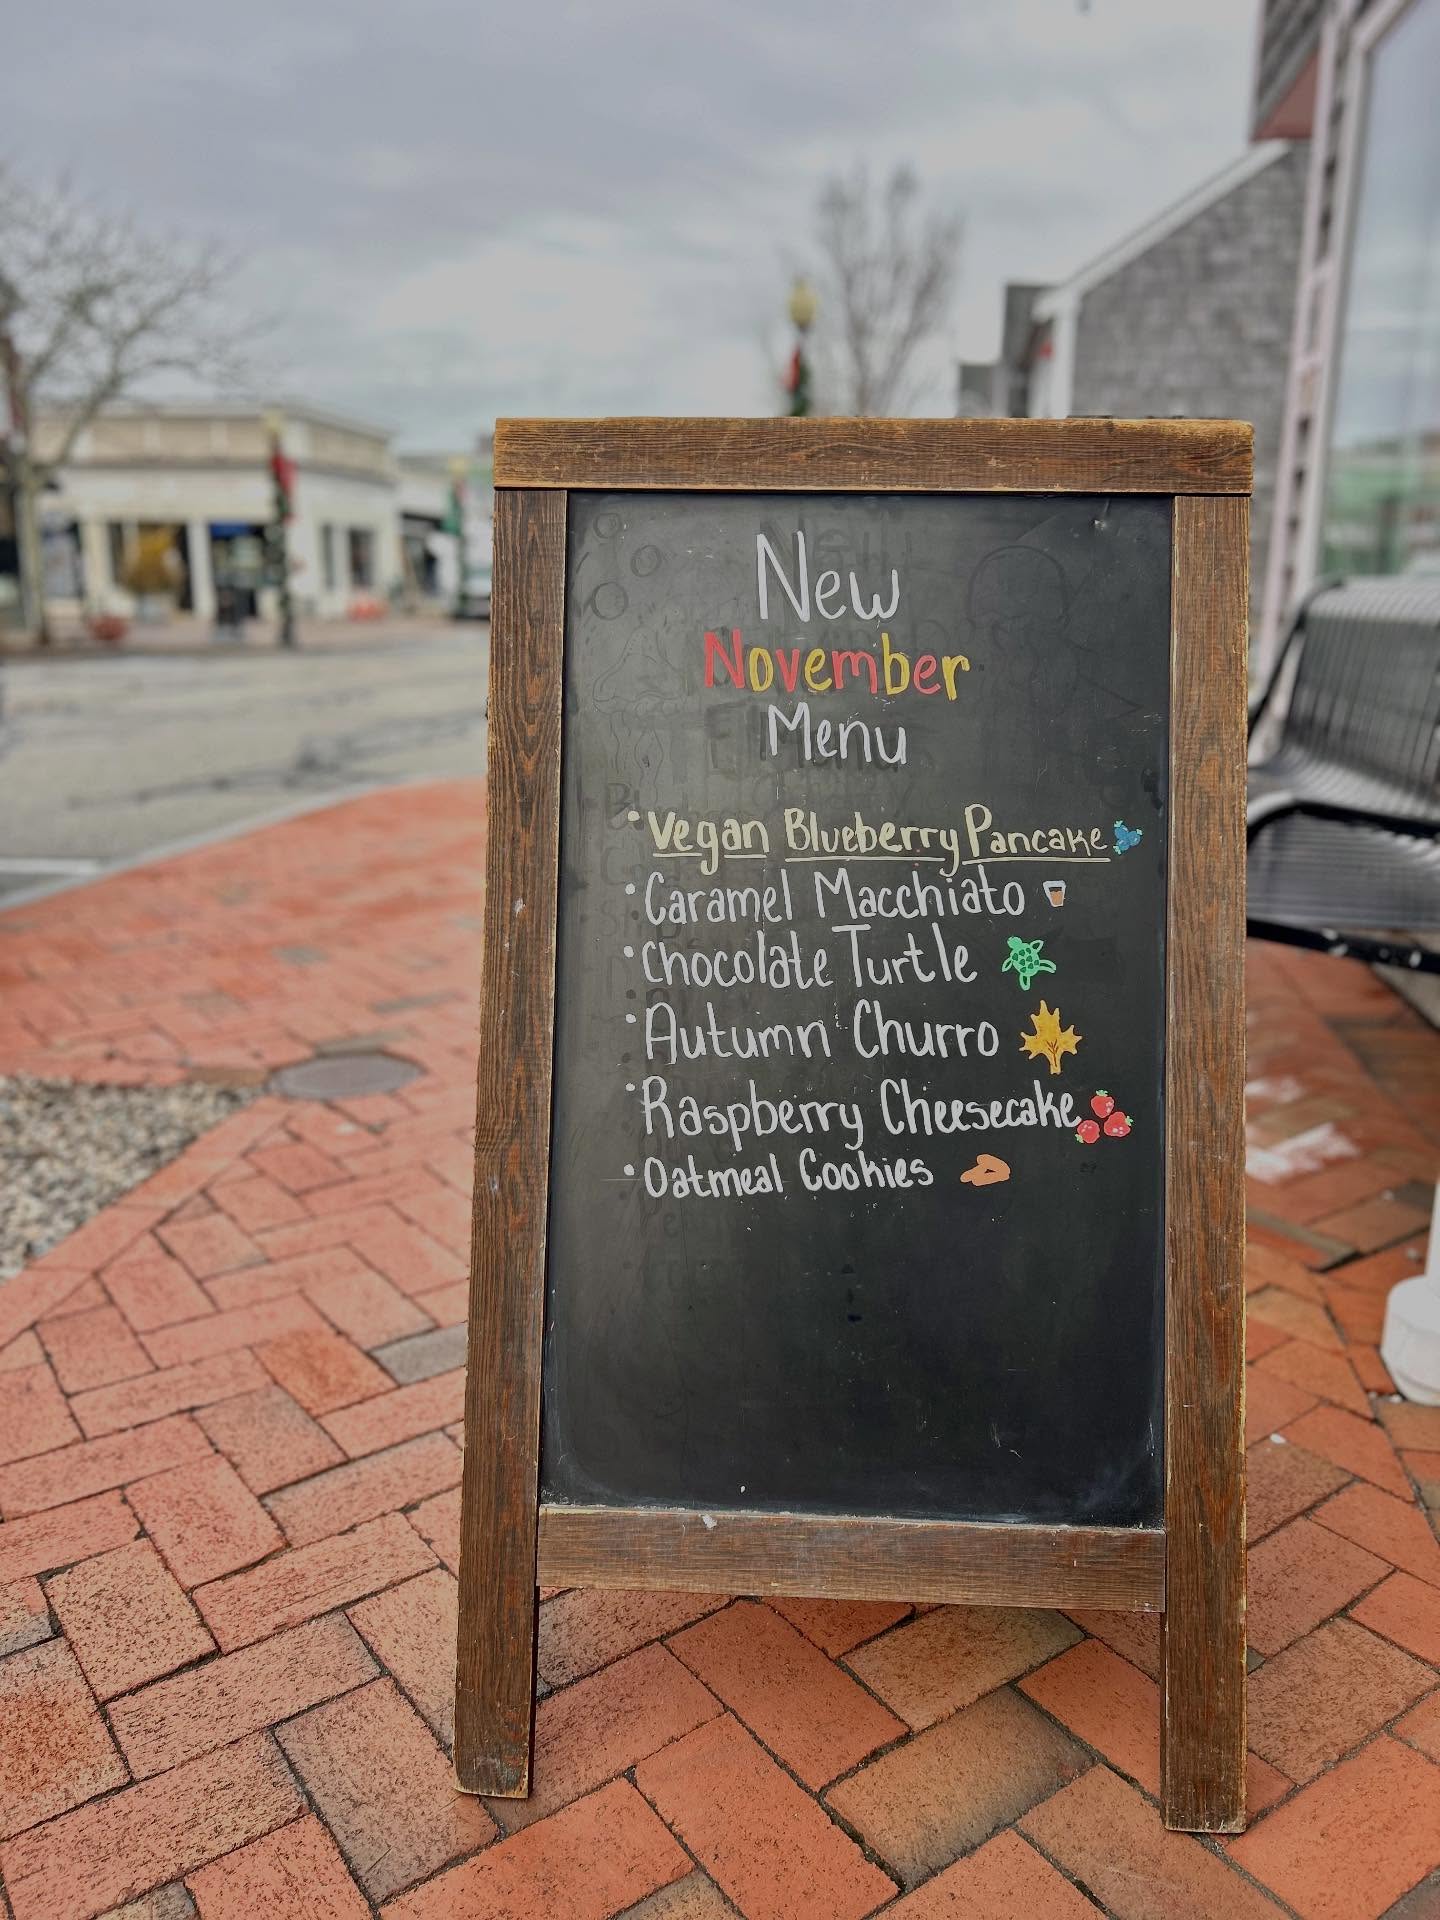 New
November
Menu
• Vegan Blueberry Pancake
• Caramel Macchiato
• Chocolate Turtle
• Autumn Churro
• Raspberry Cheesecake
• Oatmeal Cookies